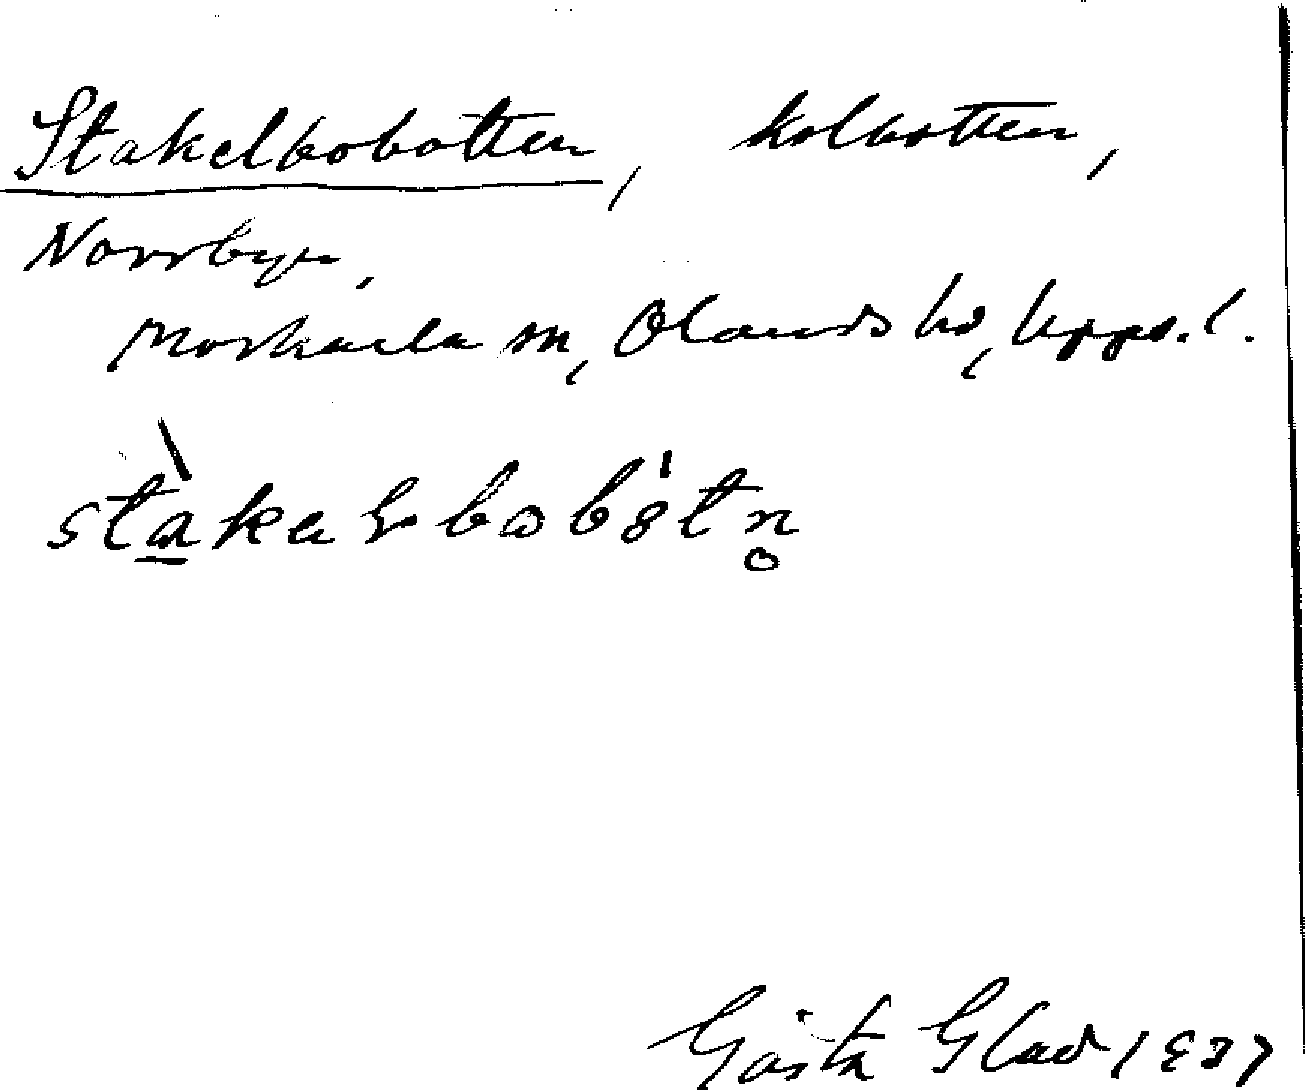 Stakelbobotten, kolbotten,
Norrbyn,
Morkarla sn, Olands hd, Upps. l.
Gösta Glad 1937